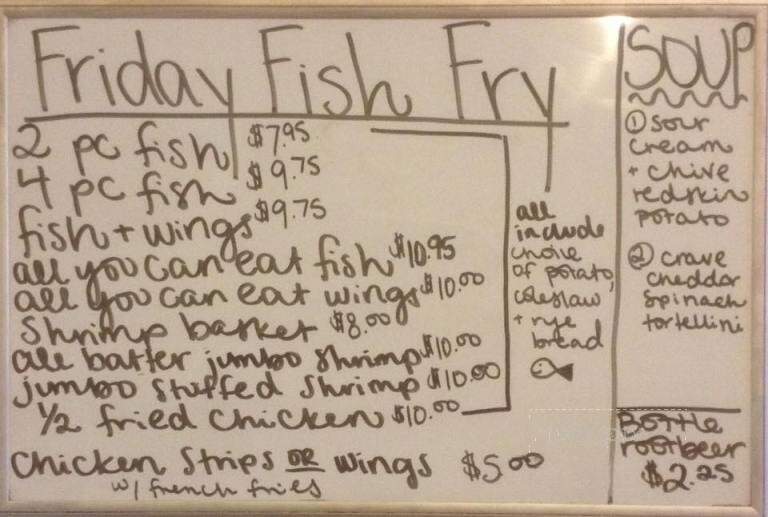 Friday Fish Fry
2 pc fish $7.95
4 pc fish $9.75
fish + wings $9.75
all you can eat fish $10.95
all you can eat wings $10.00
Shrimp basket $8.00
ale batter jumbo shrimp $10.00
jumbo stuffed shrimp $10.00
1/2 fried chicken $10.00
Chicken Strips OR wings $5.00
w/ french fries
all
include
choice
of potato,
coleslaw
+ rye
bread
SOUP
① sour
cream
+ chive
redskin
potato
② crave
cheddar
spinach
tortellini
Bottle
rootbeer
$2.25